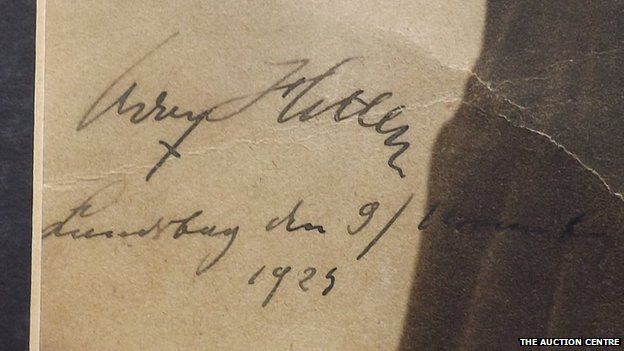 Adolf Hitler
Landsberg den 9/ November
1924
THE AUCTION CENTRE